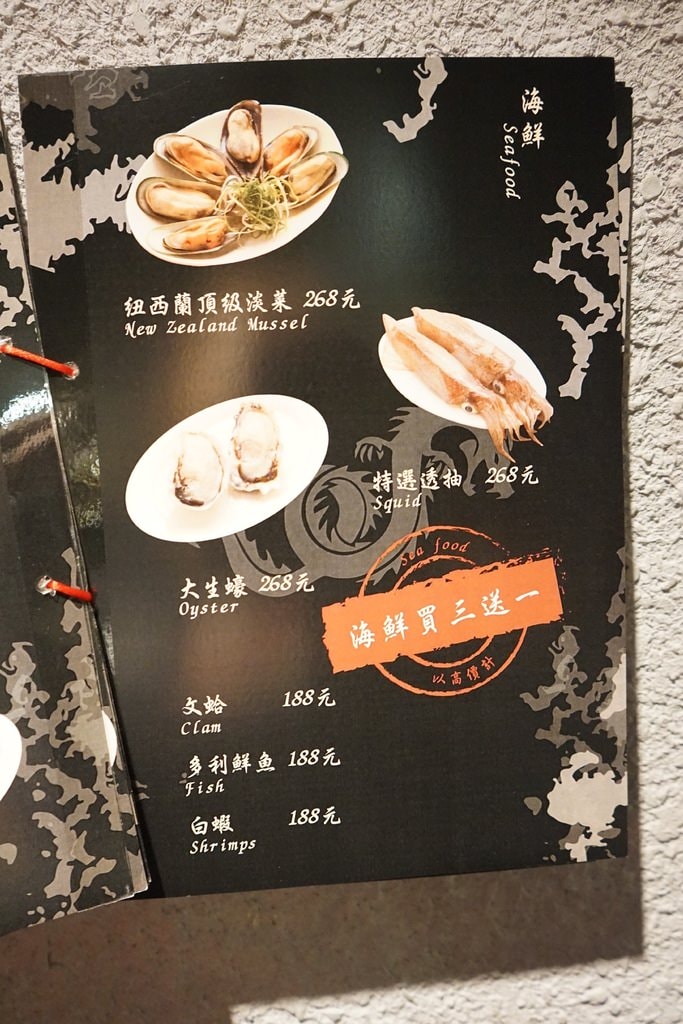 海鮮
Seafood
紐西蘭頂級淡菜 268元
New Zealand Mussel
特選透抽 268元
Squid
大生蠔 268元
Oyster
Sea food
海鮮買三送一
以高價計
文蛤 188元
Clam
多利鮮魚 188元
Fish
白蝦 188元
Shrimps